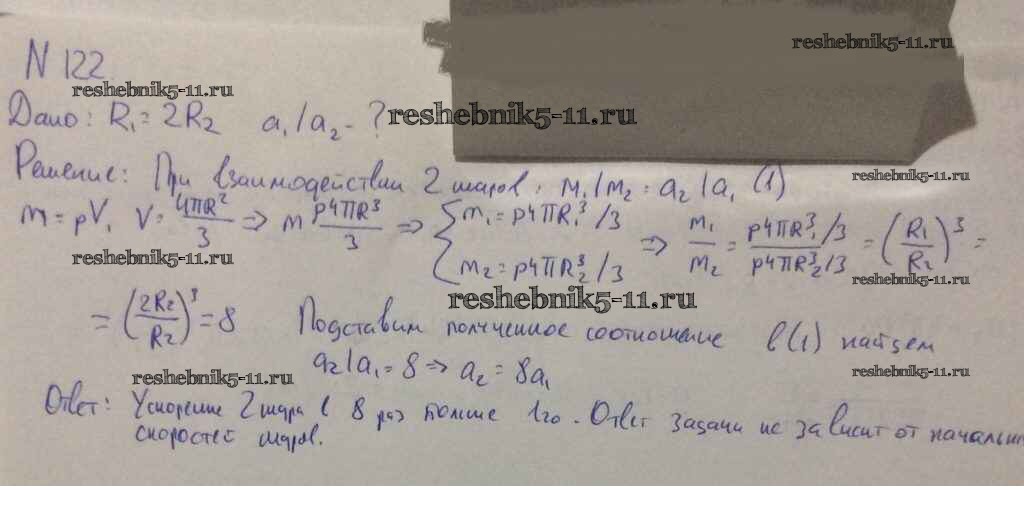 reshebnik5-11.ru
N 122
reshebnik5-11.ru
Дано: R₁ = 2R₂ a₁/a₂ - ? reshebnik5-11.ru
Решение: При взаимодействии 2 шаров: m₁/m₂ = a₂/a₁ (1)
reshebnik5-11.ru
m = ρV, V = 4πR²/3 => m ρ4πR³/3 => { m₁ = ρ4πR₁³/3 m₂ = ρ4πR₂³/3 => m₁/m₂ = ρ4πR₁³/3 / ρ4πR₂³/3 = (R₁/R₂)³ =
reshebnik5-11.ru
reshebnik5-11.ru
reshebnik5-11.ru
= (2R₂/R₂)³ = 8 Подставим полученное соотношение в (1) найдем
a₂/a₁ = 8 => a₂ = 8a₁
reshebnik5-11.ru
reshebnik5-11.ru
Ответ: Ускорение 2 шара в 8 раз больше 1го. Ответ задачи не зависит от начальн
скоростей шаров.